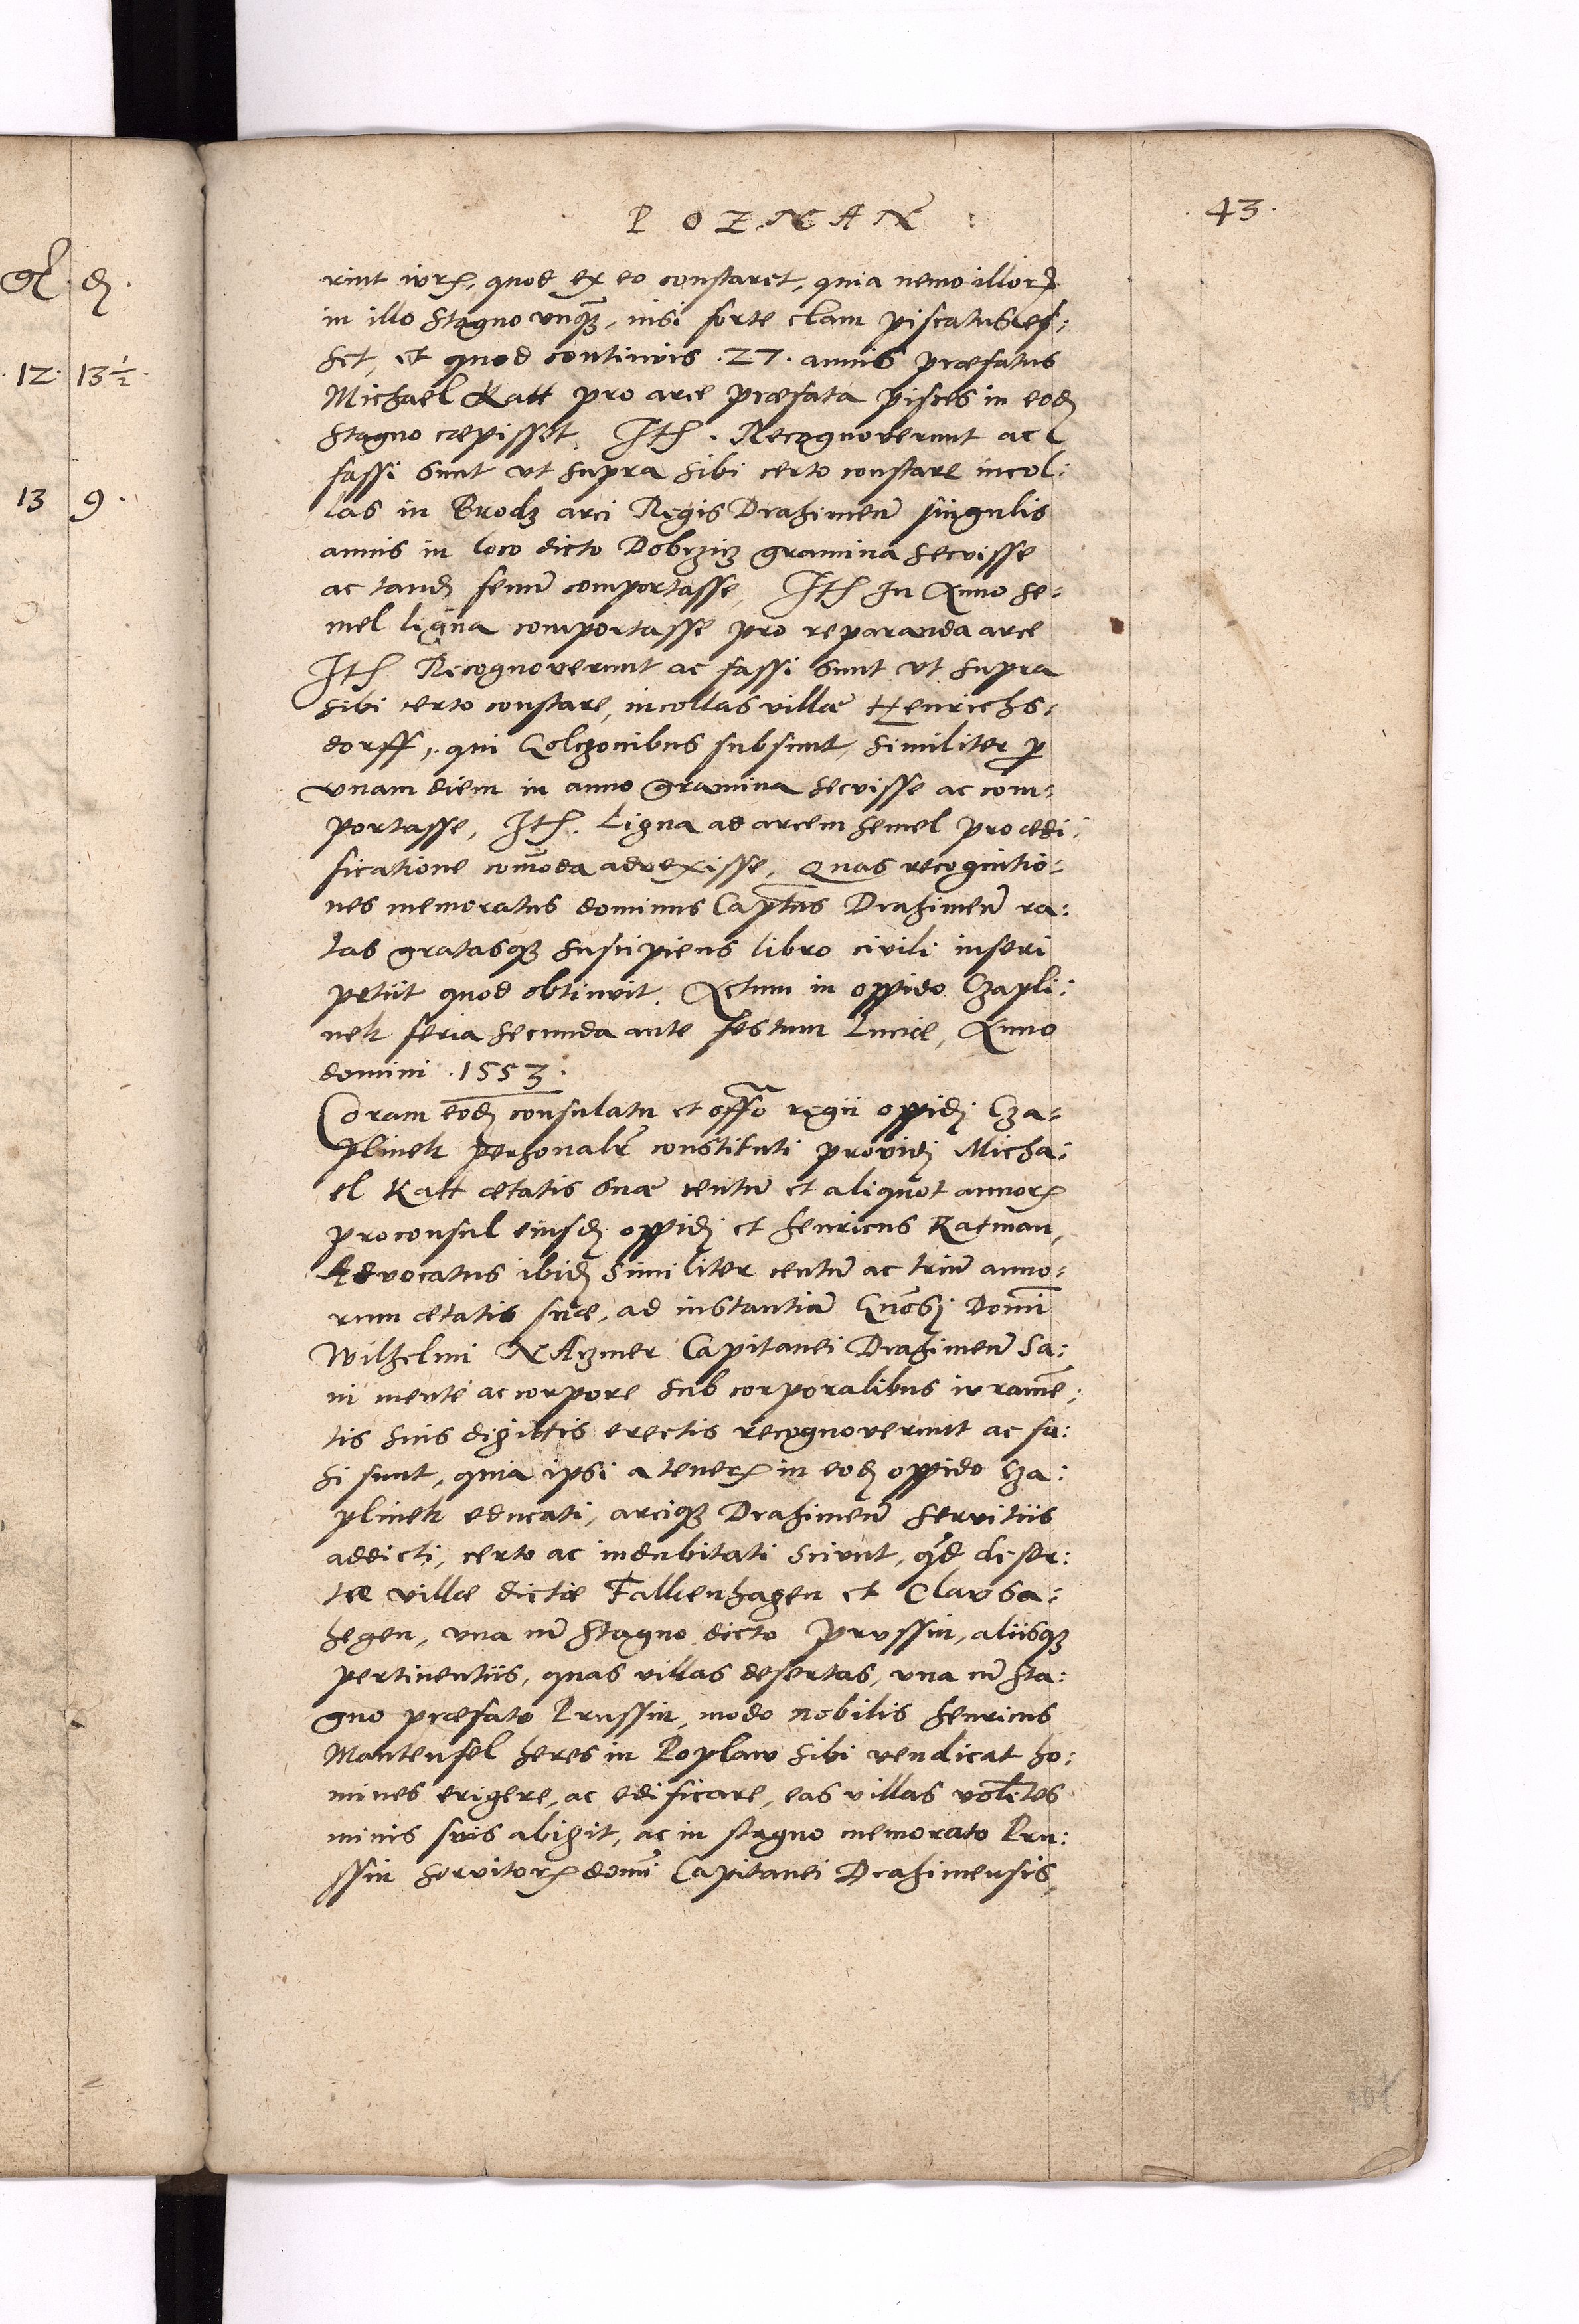 gl. d.
12. 13½.
13 9.
POZNAN̄:
.43.
rint iurꝝ, quod ex eo constaret, quia nemo illorꝝ
in illo stagno vnqꝫ, nisi forte clam piscatus es:
set, et quod continuis .27. annis præfatus
Michael Ratt pro arce præfata pisces in eod̃
stagno cæpisset. Itē. Recognoverunt ac
fassi sunt ut supra sibi certo constare incol:
las in Brodz arci Regis Drahimeñ singulis
annis in loco dicto Dobrziz gramina secuisse
ac tand̃ fenũ comportasse, Itē In Anno se:
mel ligna comportasse pro reparanda arce
Itē Recognoverunt ac fassi sunt ut supra
sibi certo constare, incollas villæ Henrichs:
dorff, qui Golczonibus subsunt, similiter ꝑ
vnam diem in anno gramina secuisse ac com:
portasse, Itē. Ligna ad arcem semel pro ædi:
ficatione com̄oda advexisse, Quas recognitio:
nes memoratus dominus Capt̃us Drahimeñ ra:
tas gratasqꝫ suscipiens libro civili inseri
petiit quod obtinuit. Actum in oppido Czapli:
nek feria secunda ante festum Luciæ, Anno
domini .1553.
Coram eod̃ consulatu et offõ regii oppidi Cza:
plinek personalr̃ constituti providi Micha:
el Ratt ætatis suæ centũ et aliquot annorꝝ
proconsul eiusd̃ oppidi et Henricus Ratman,
Advocatus ibid̃ similiter centũ ac triũ anno:
rum ætatis suæ, ad instantiã Gnõsi Domĩ
Wilhelmi NAczmer Capitanei Drahimeñ sa:
ni mente ac corpore sub corporalibus iuramẽ:
tis suis digittis erectis recognoverunt ac fa:
si sunt, quia ipsi a tenerꝝ in eod̃ oppido Cza:
plinek educati, arciqꝫ Drahimeñ servitiis
addicti, certo ac indubitati sciunt, qd̃ deser:
tæ villæ dictæ Falkenhagen et Clausa:
hegen, vna cũ stagno dicto Prussin, aliisqꝫ
pertinentiis, quas villas desertas, vna cũ sta:
gno præfato Prussin, modo nobilis Henricus
Manteufel heres in Poplaw sibi vendicat ho:
mines erigere, ac edificare, eas villas volẽtes
minis suis abigit, ac in stagno memorato Pru:
ssin servitorꝝ domĩ Capitanei Drahimensis,